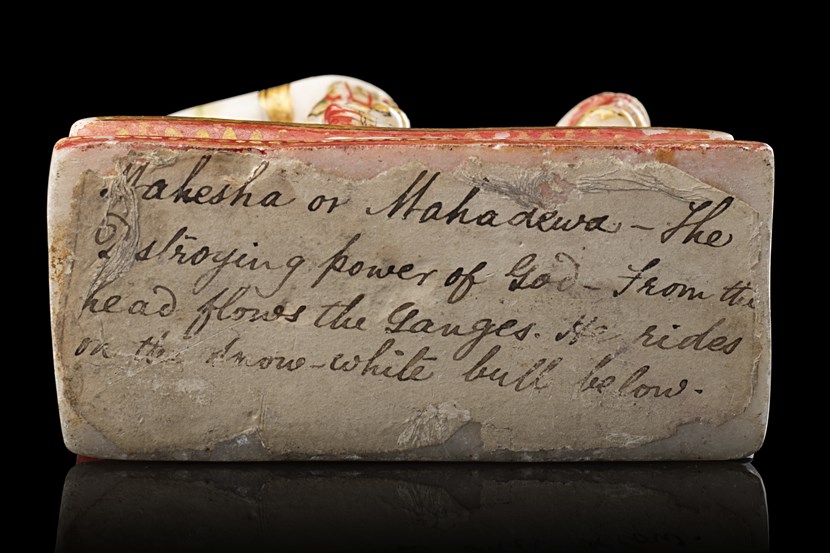 Mahesha or Mahadewa - The
Destroying power of God - From the
head flows the Ganges. He rides
on the snow-white bull below.